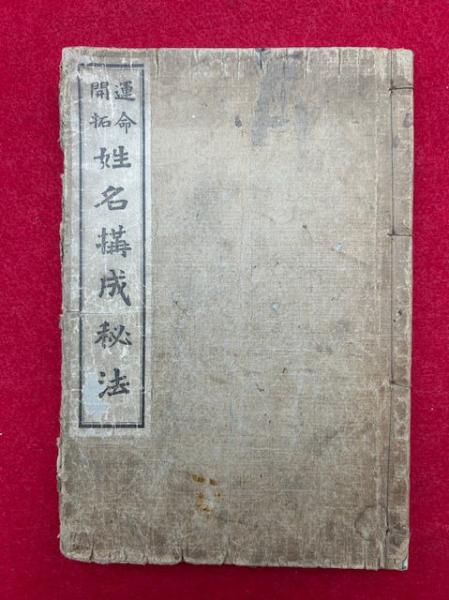 運命
開拓
姓名構成秘法